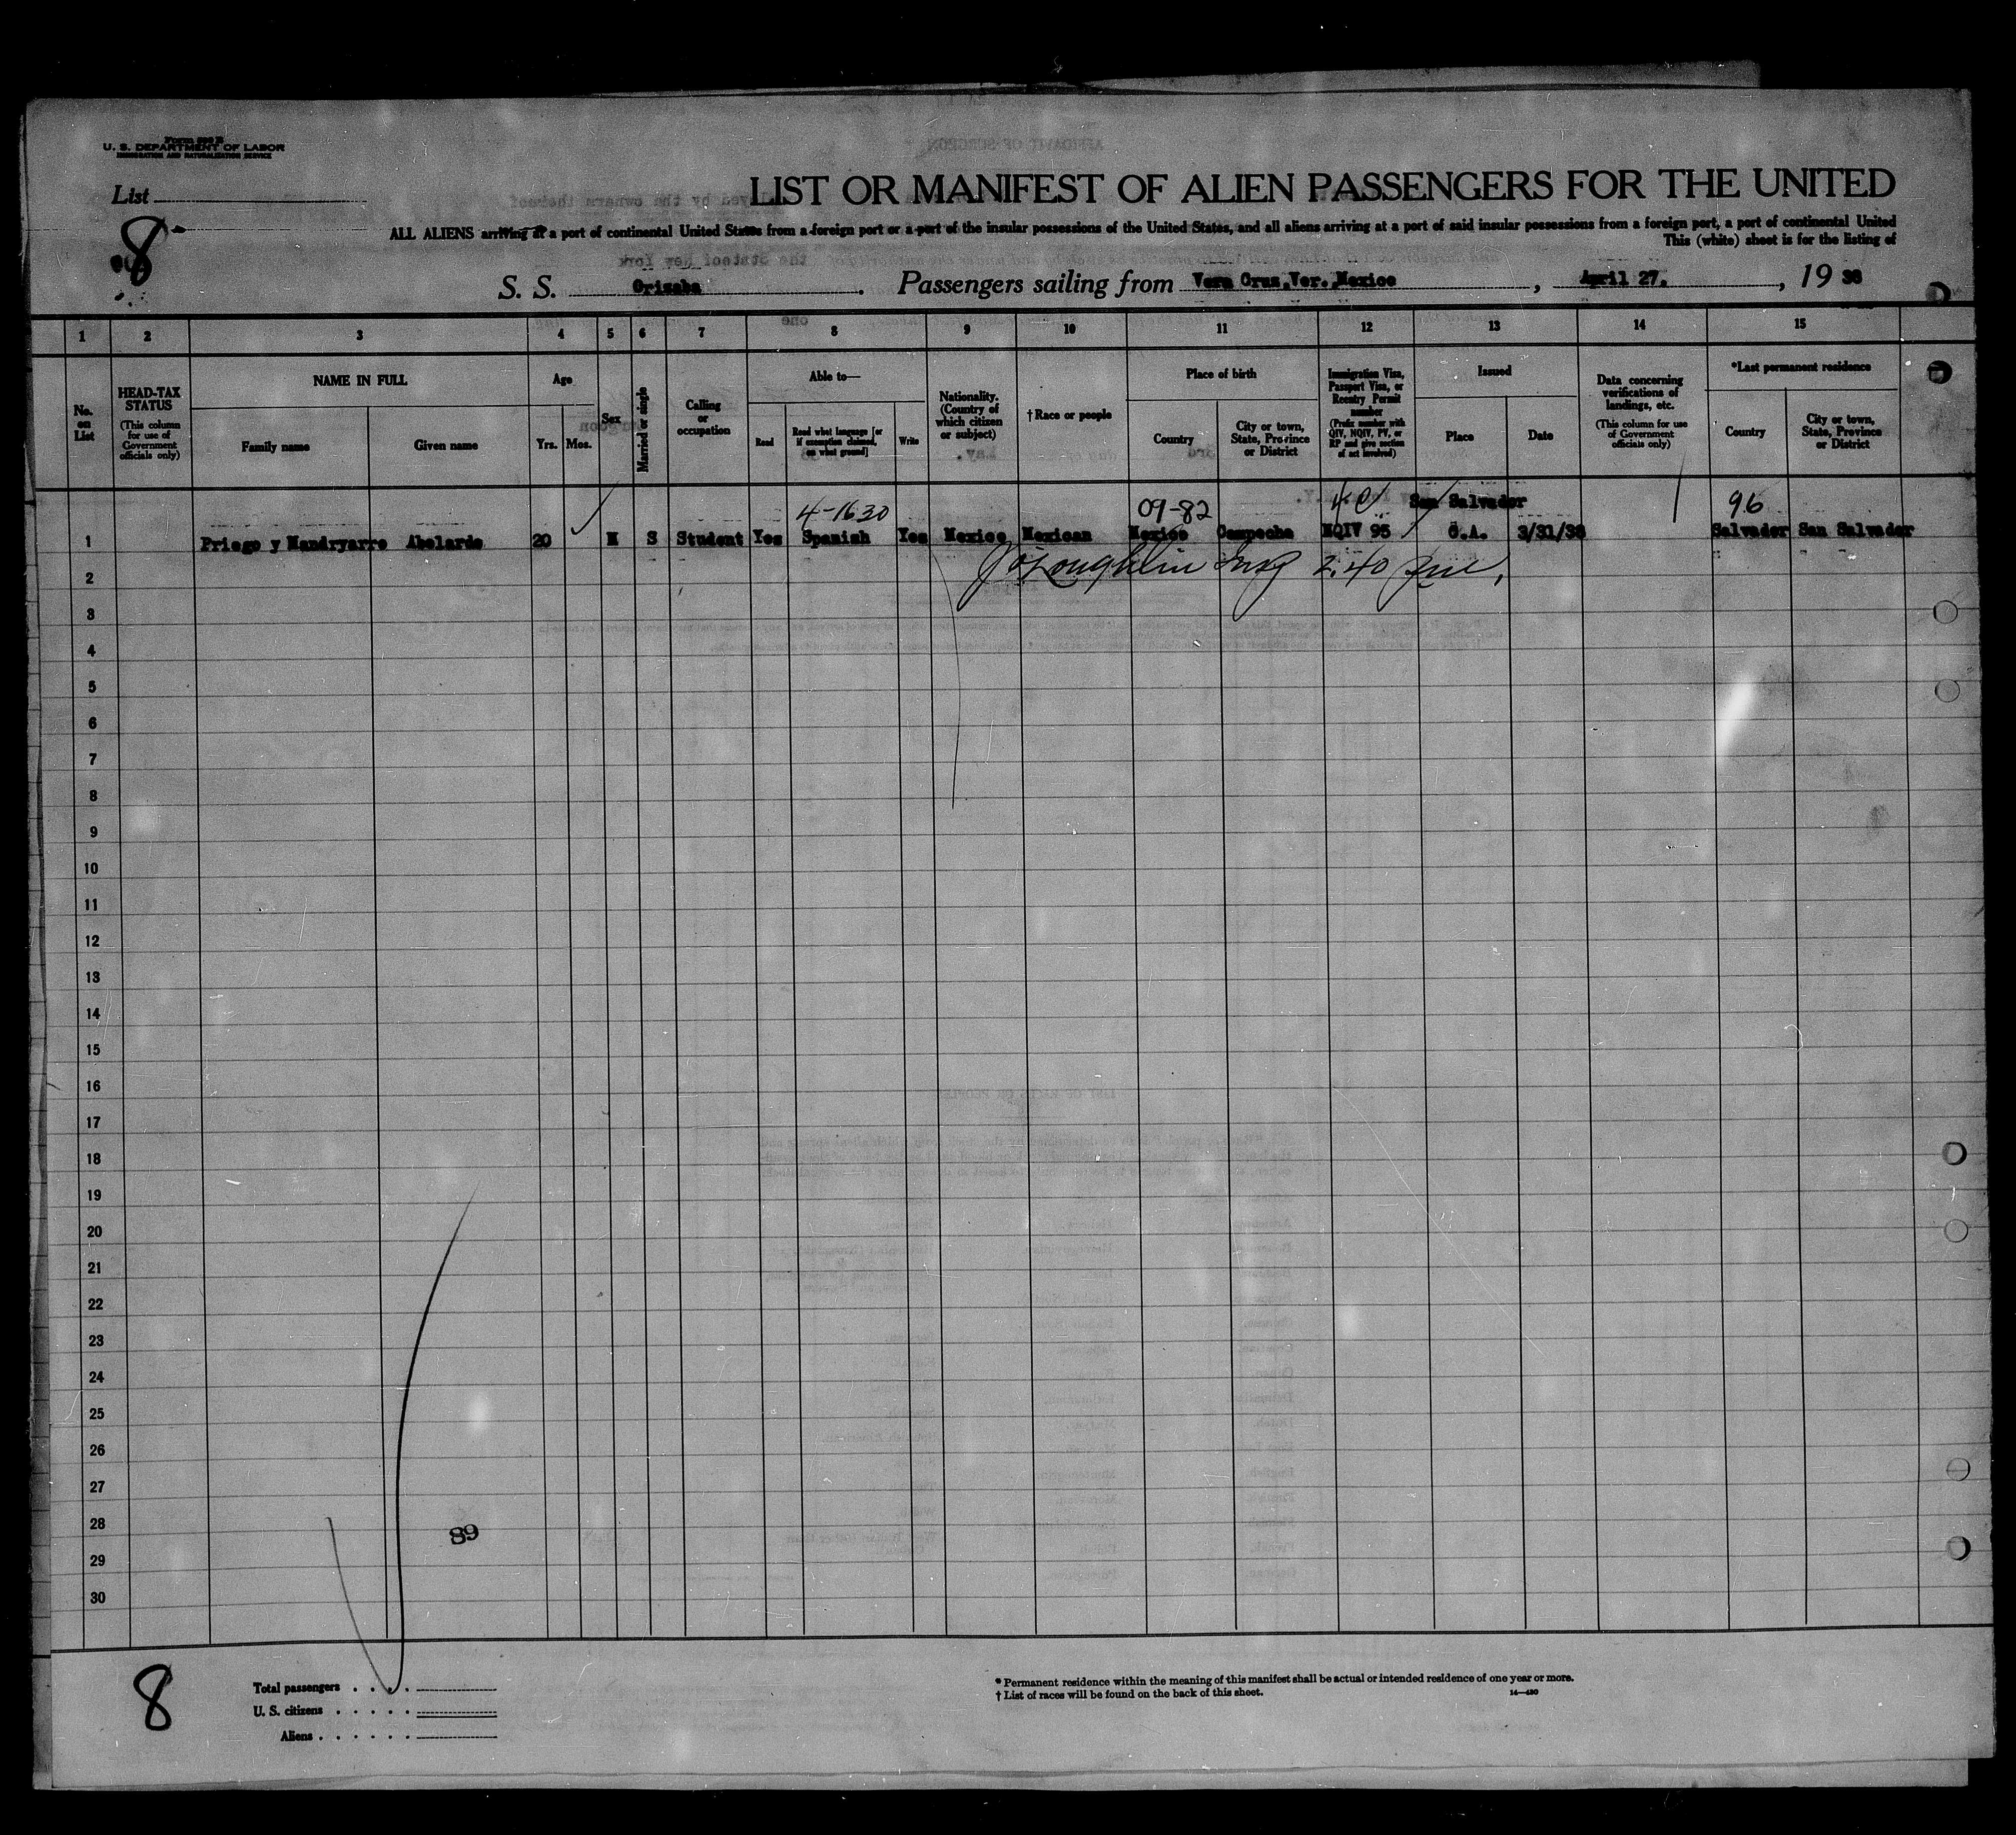 U. S. DEPARTMENT OF LABOR
IMMIGRATION AND NATURALIZATION SERVICE
List
8
LIST OR MANIFEST OF ALIEN PASSENGERS FOR THE UNITED
ALL ALIENS arriving at a port of continental United States from a foreign port or a port of the insular possessions of the United States, and all aliens arriving at a port of said insular possessions from a foreign port, a port of continental United
This (white) sheet is for the listing of
S. S. Orizaba. Passengers sailing from Vera Cruz, Ver. Mexico, April 27., 19 38
1 2 3 4 5 6 7 8 9 10 11 12 13 14 15
No. on List
HEAD-TAX STATUS
(This column for use of Government officials only)
NAME IN FULL
Family name
Given name
Age
Yrs. Mos.
Sex
Married or single
Calling or occupation
Able to—
Read
Read what language [or if exemption claimed, on what ground]
Write
Nationality. (Country of which citizen or subject)
†Race or people
Place of birth
Country
City or town, State, Province or District
Immigration Visa, Passport Visa, or Reentry Permit number
(Prefix number with QIV, NQIV, PV, or RP and give section of act involved)
Issued
Place
Date
Data concerning verifications of landings, etc.
(This column for use of Government officials only)
*Last permanent residence
Country
City or town, State, Province or District
4-1630 09-82 4C San Salvador 96
1 Priego y Mandryarro Abelardo 20 M S Student Yes Spanish Yes Mexico Mexican Mexico Campeche NQIV 95 C.A. 3/31/38 Salvador San Salvador
2 O'Loughlin Insp 2:40
3
4
5
6
7
8
9
10
11
12
13
14
15
16
17
18
19
20
21
22
23
24
25
26
27
28
89
29
30
8
Total passengers . . . .
U. S. citizens . . . . .
Aliens . . . . . .
* Permanent residence within the meaning of this manifest shall be actual or intended residence of one year or more.
† List of races will be found on the back of this sheet.
14—430